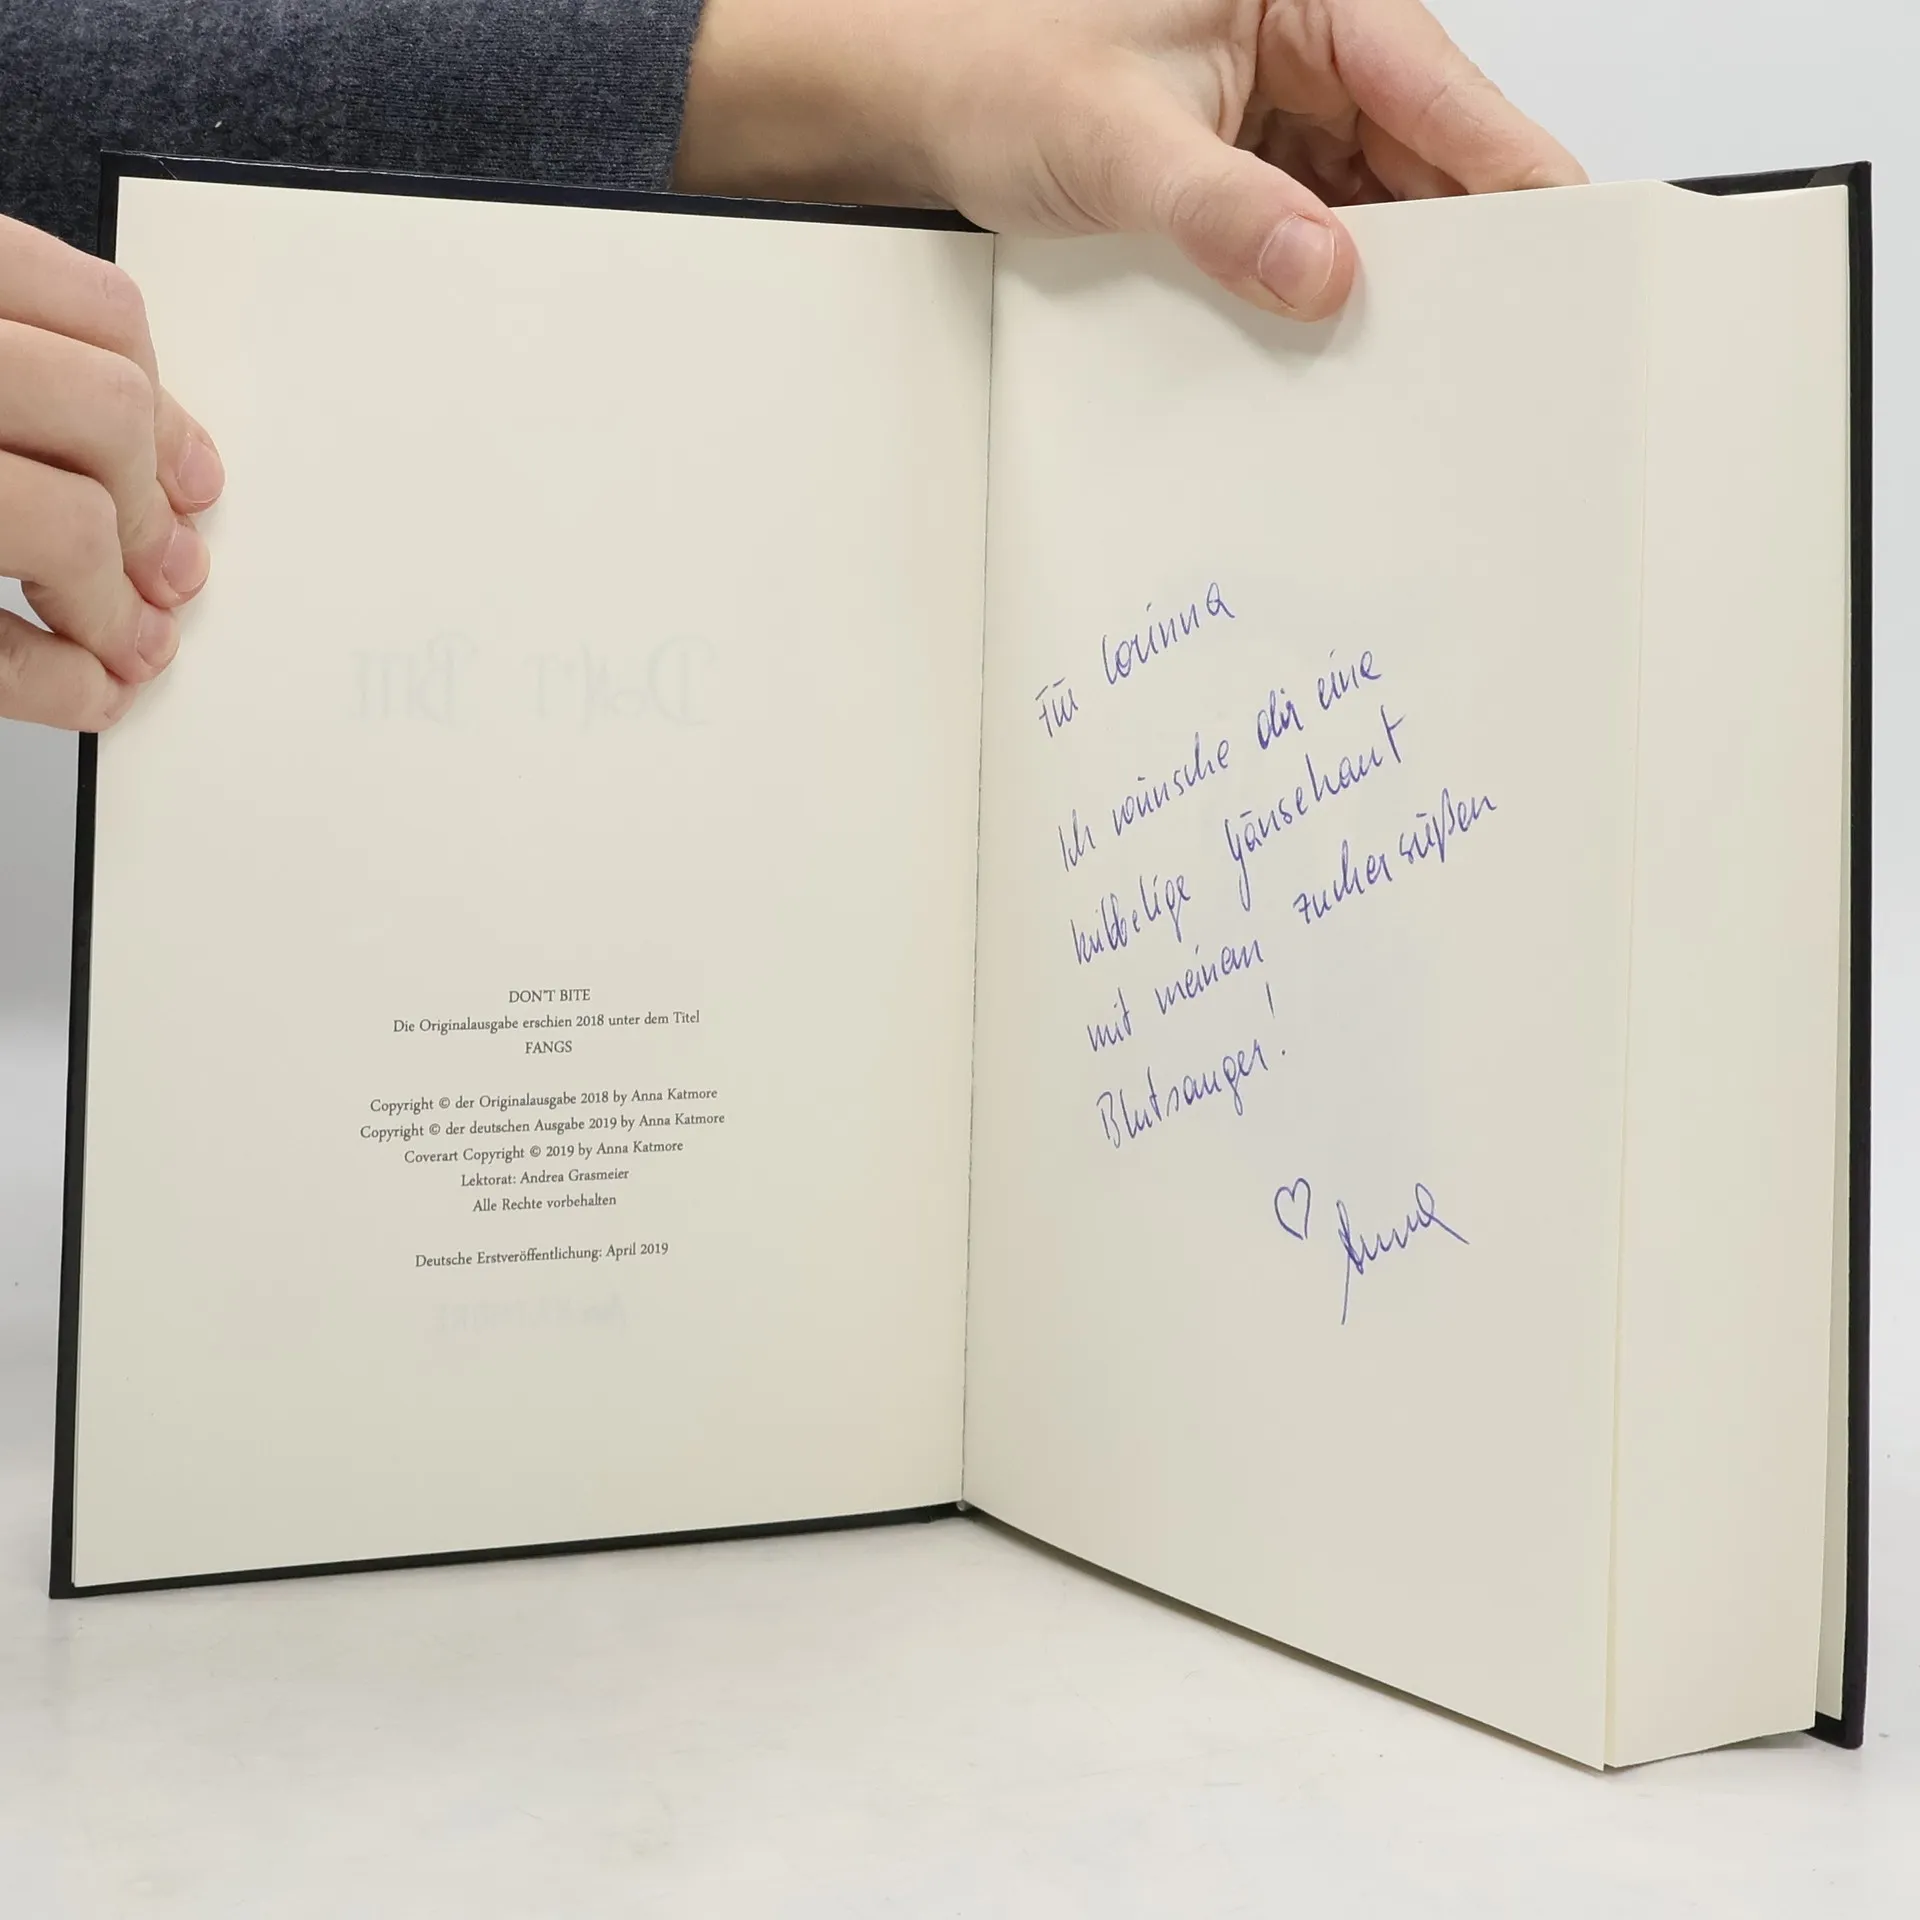 DON'T BITE
DON'T BITE
Die Originalausgabe erschien 2018 unter dem Titel
FANGS
Copyright © der Originalausgabe 2018 by Anna Katmore
Copyright © der deutschen Ausgabe 2019 by Anna Katmore
Coverart Copyright © 2019 by Anna Katmore
Lektorat: Andrea Grasmeier
Alle Rechte vorbehalten
Deutsche Erstveröffentlichung: April 2019
Für Corinna
Ich wünsche dir eine
kribbelige Gänsehaut
mit meinen zuckersüßen
Blutsauger!
♡ Anna